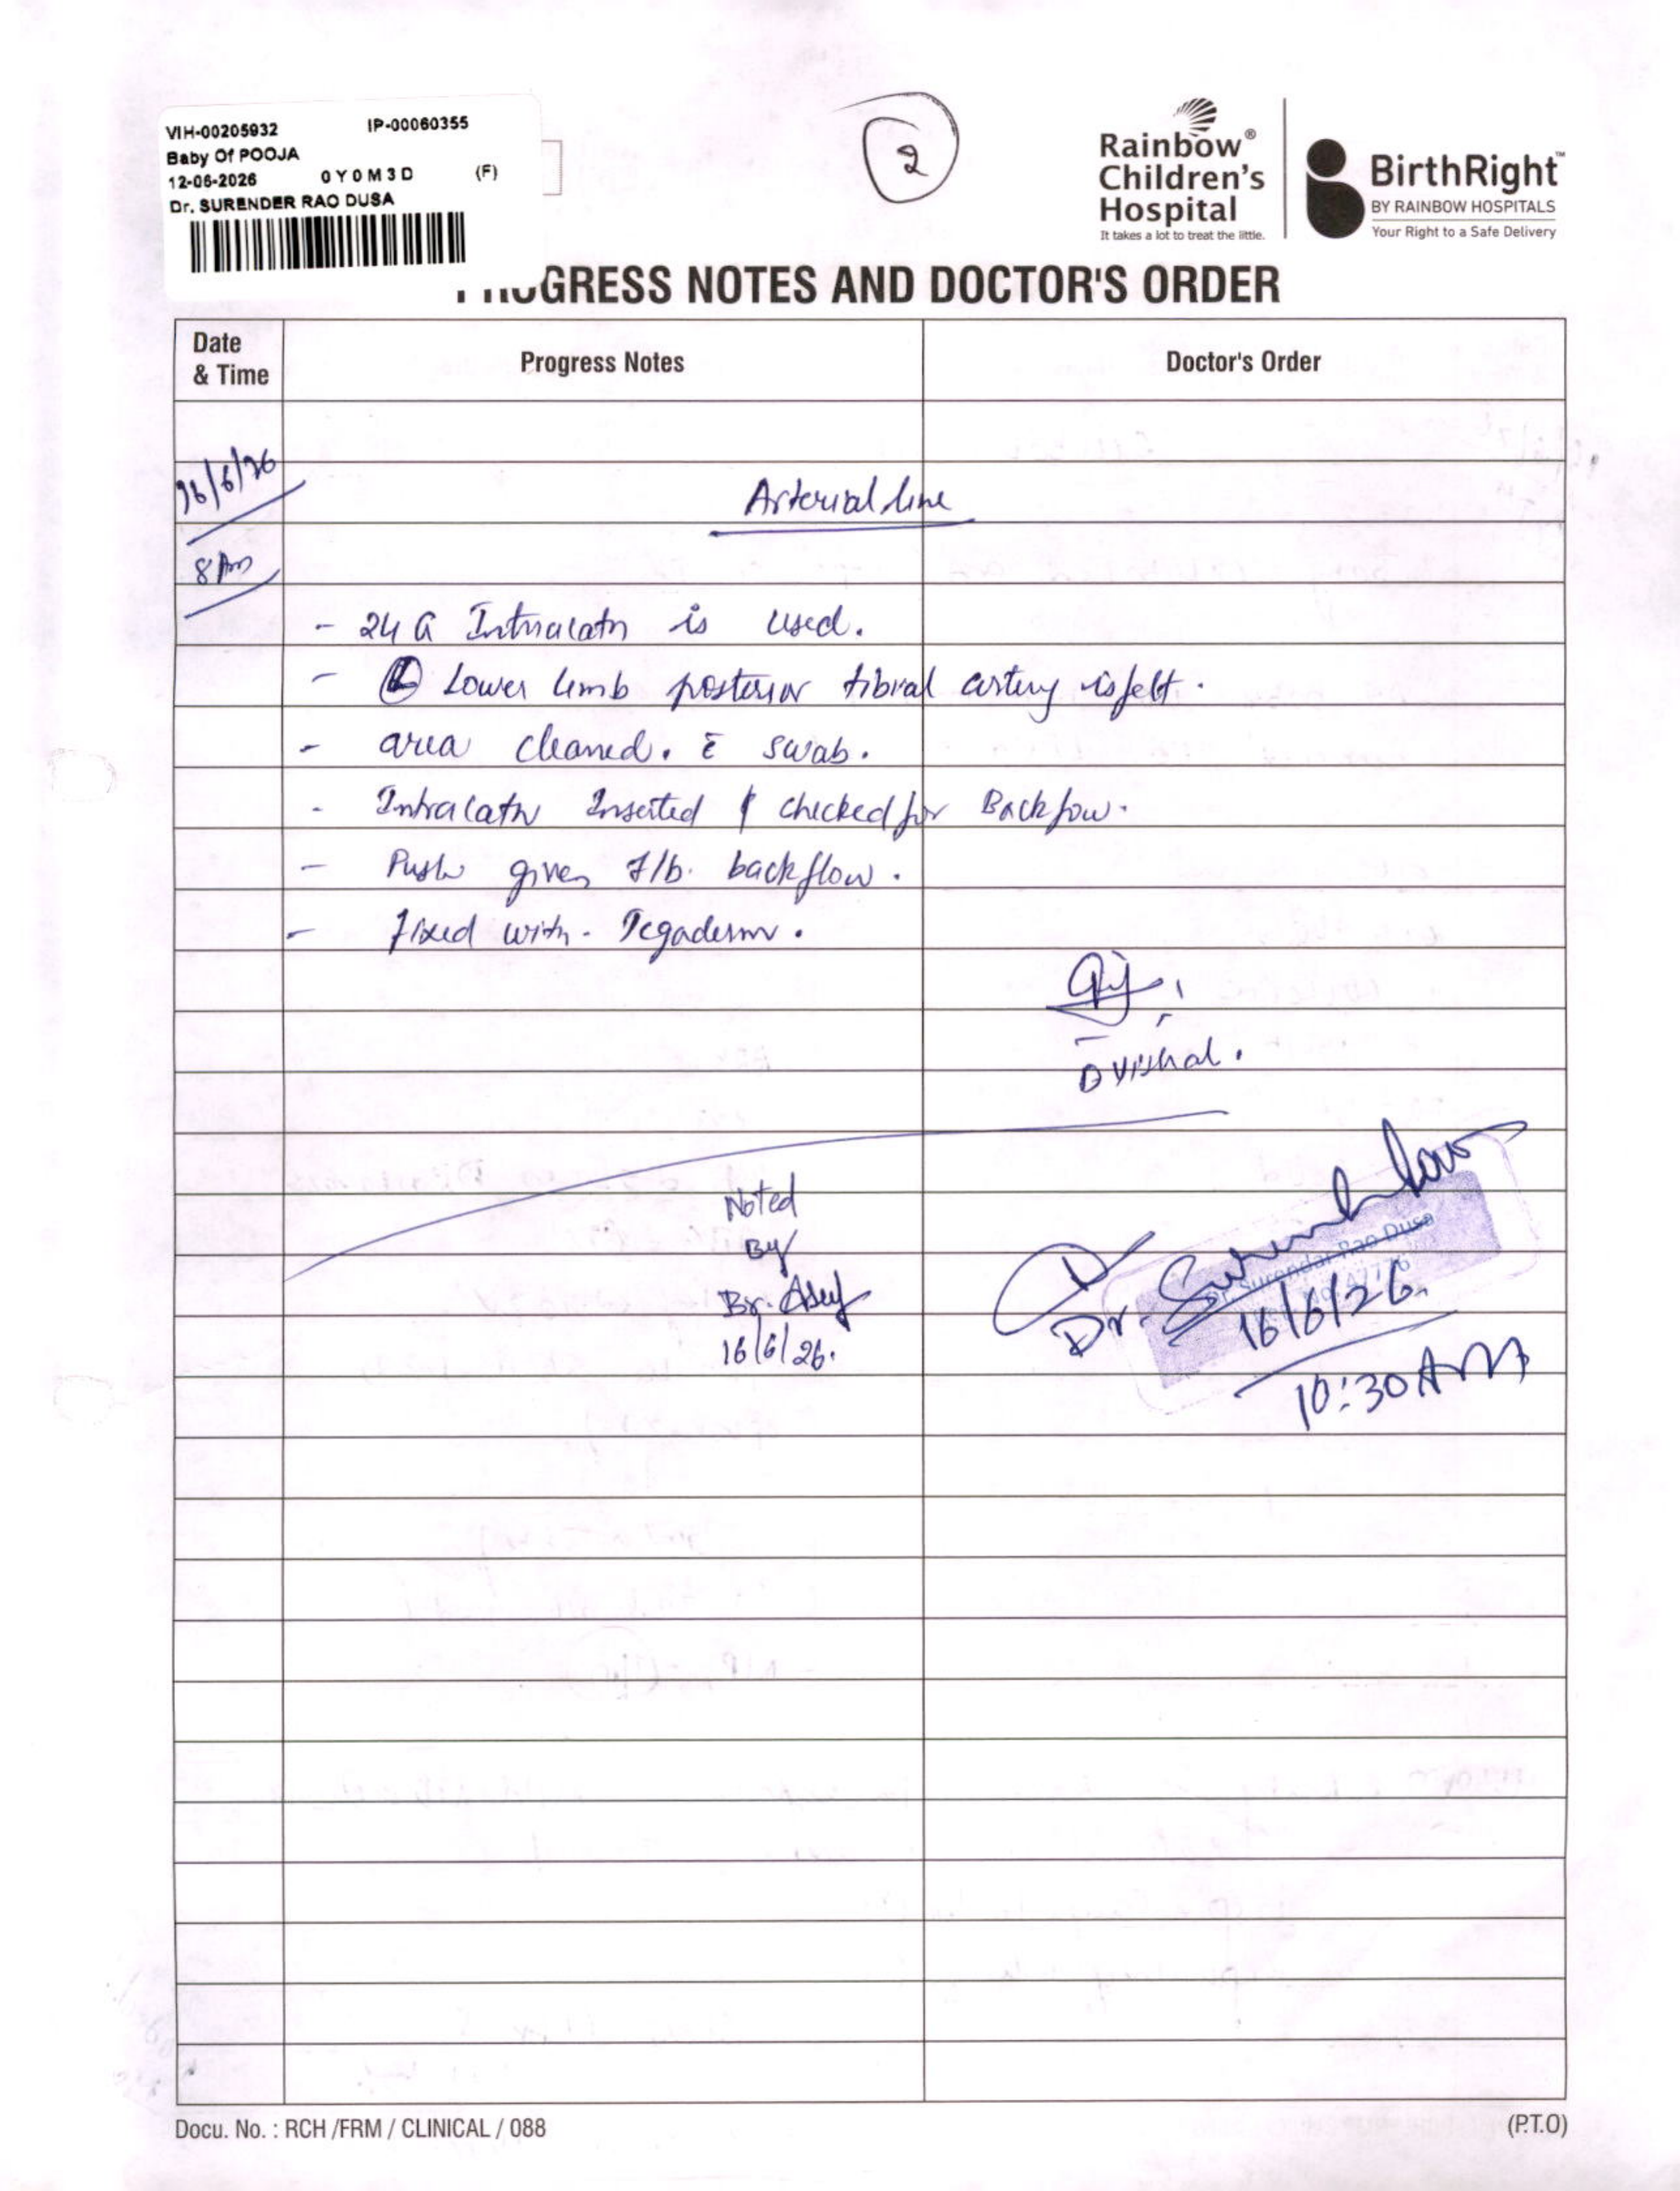 VIH-00205932 IP-00060355
Baby Of POOJA
12-06-2026 0Y0M3D (F)
Dr. SURENDER RAO DUSA
2
Rainbow®
Children's
Hospital
It takes a lot to treat the little.
BirthRight™
BY RAINBOW HOSPITALS
Your Right to a Safe Delivery
GRESS NOTES AND DOCTOR'S ORDER
Date
& Time
Progress Notes
Doctor's Order
16/6/26
8 Am
Arterial line
- 24 G Intracath is used.
- Ⓛ Lower limb posterior tibial artery is felt.
- area cleaned. c̄ swab.
- Intracath Inserted & checked for Backflow.
- Push given f/b. backflow.
- fixed with - Tegaderm.
Dr Vishal.
Noted
By
Br.
16/6/26.
Dr. Surender Rao
Dr. Surendar Rao Dusa
16/6/26.
10:30 AM
Docu. No. : RCH /FRM / CLINICAL / 088
(P.T.O)